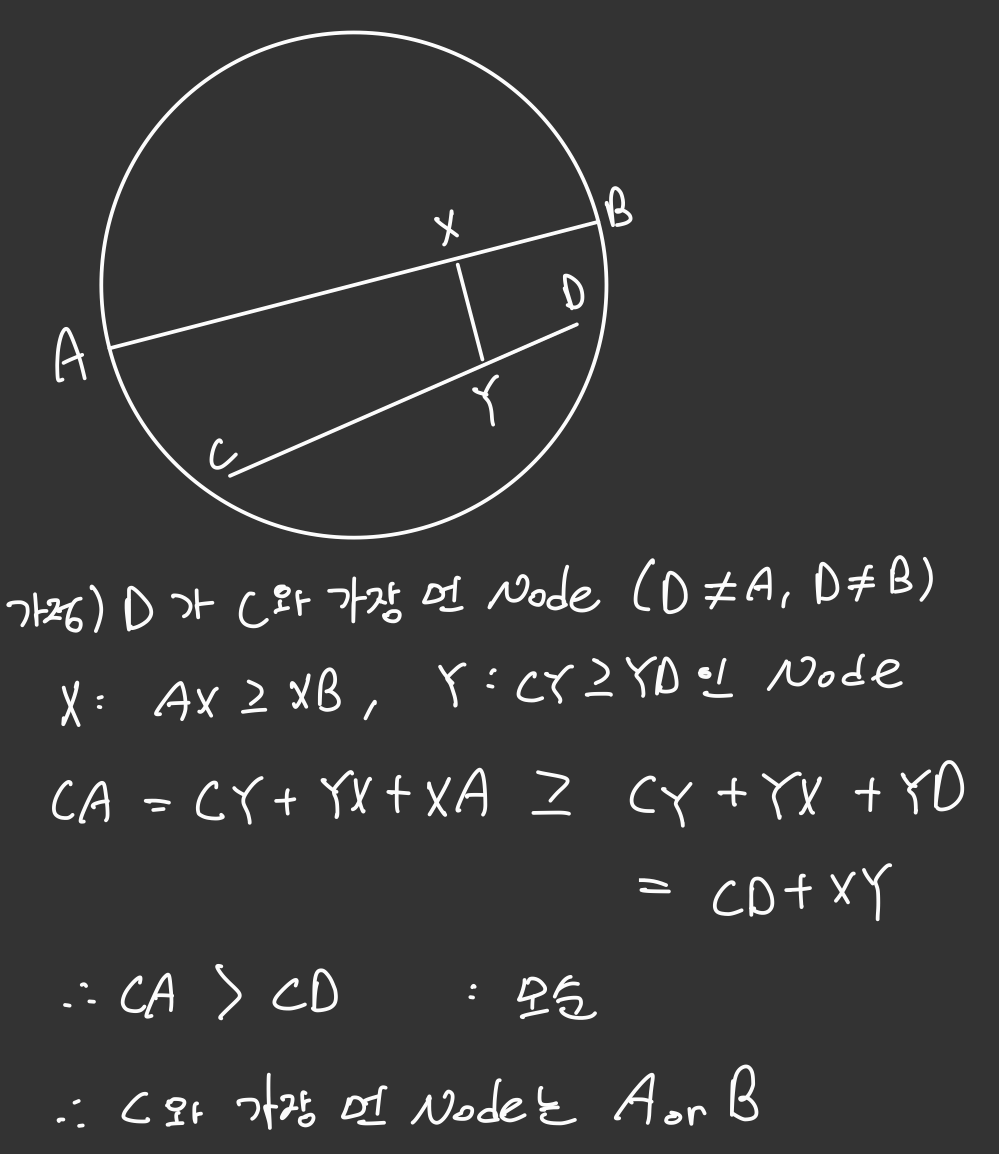 X
B
D
A
Y
C
가정) D가 C와 가장 먼 Node (D≠A, D≠B)
X: AX ≥ XB, Y: CY≥YD인 Node
CA = CY + YX + XA ≥ CY + YX + YD
= CD + XY
∴ CA > CD : 모순
∴ C와 가장 먼 Node는 A or B